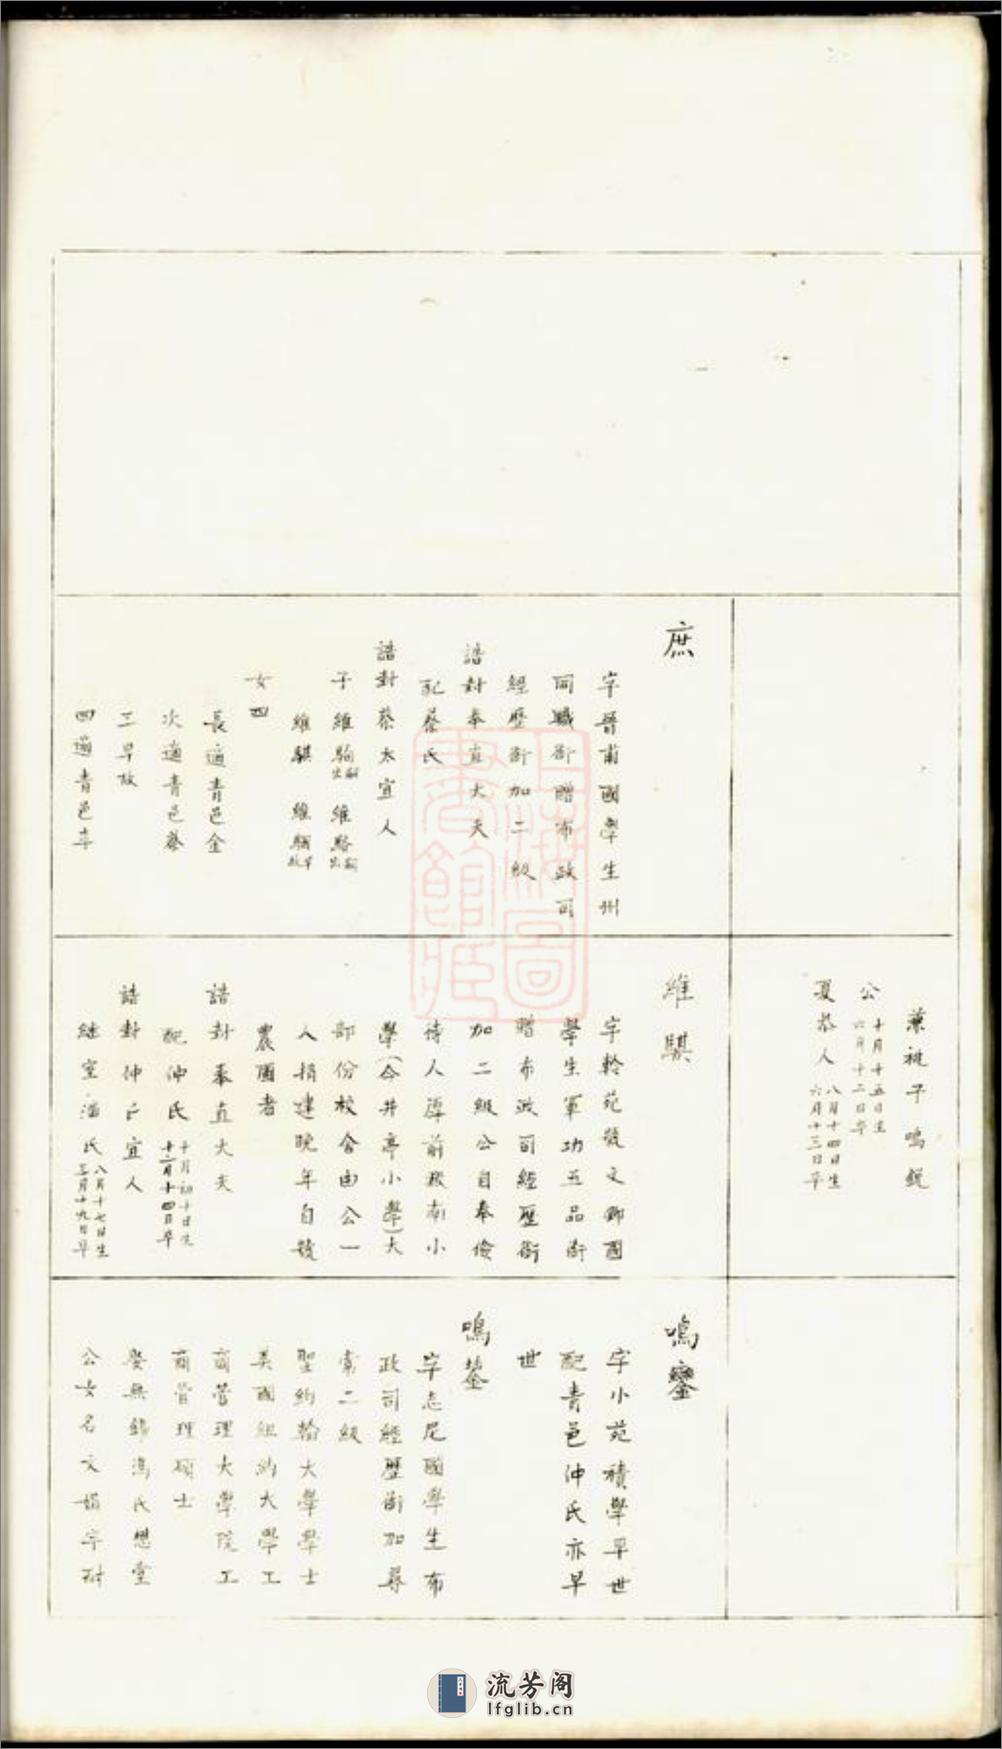 兼祧子鳴銳
公 十月十五日生 六月十二日卒
夏恭人 八月十四日生 六月十三日卒
庶
字晉甫國學生州
同職銜贈布政司
經歷銜加二級
誥封奉直大夫
配蔡氏
誥封蔡太宜人
子 維駒出嗣 維駱出嗣
維騏 維駬早故
女四
長適青邑金
次適青邑蔡
三早故
四適青邑辛
維騏
字軨苑號文卿國
學生軍功五品銜
贈布政司經歷銜
加二級公自奉儉
待人厚前溆南小
學(今井亭小學)大
部份校舍由公一
人捐建晚年自號
農圃者
誥封奉直大夫
配沖氏 十月初十日生 十二月十四日卒
誥封仲太宜人
繼室潘氏 八月十七日生 三月十九日卒
鳴鑾
字小苑積學早世
配青邑沖氏亦早
世
鳴鎣
字志尼國學生布
政司經歷銜加尋
常二級
聖約翰大學學士
美國紐約大學工
商管理大學院工
商管理碩士
娶無錫馮氏懋堂
公女名文娟字耐
上海圖書館藏
流芳阁
lfglib.cn